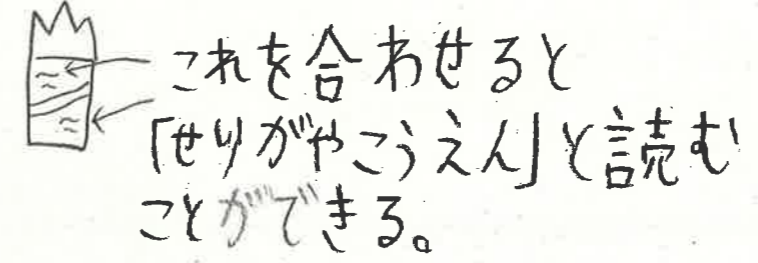 これを合わせると
「せりがやこうえん」と読む
ことができる。